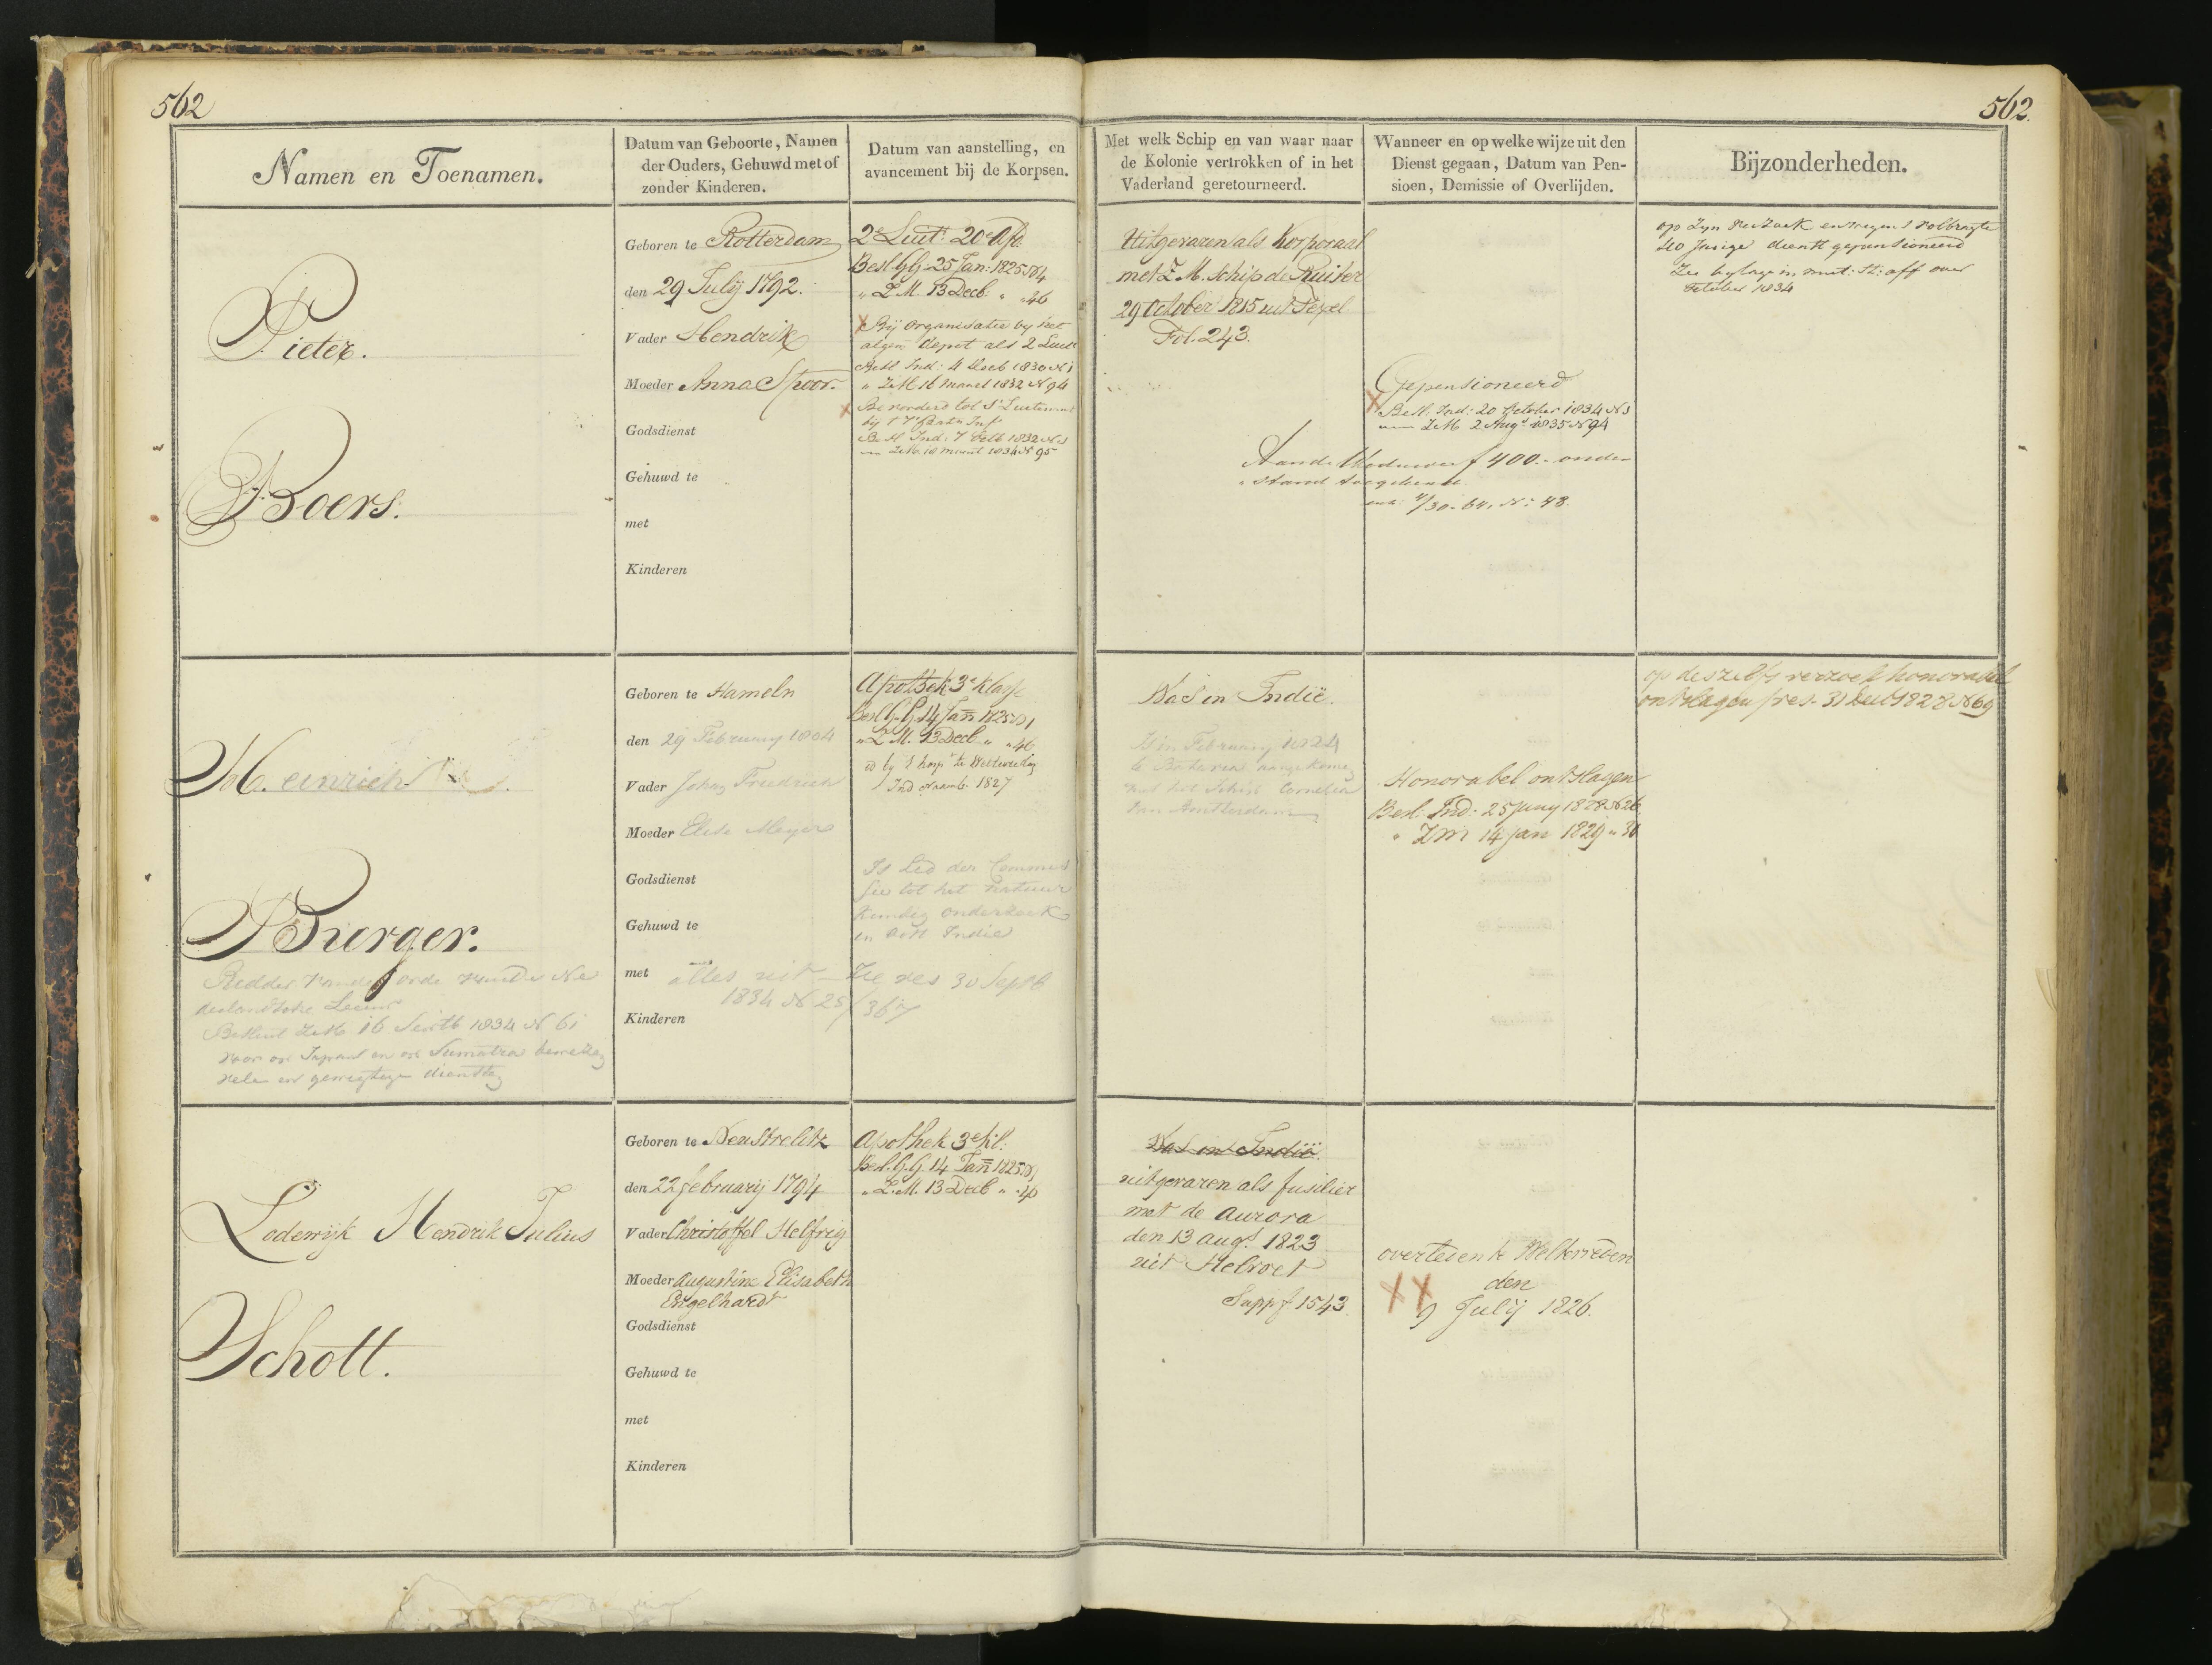 562
562.
Namen en Toenamen.
Datum van Geboorte, Namen
der Ouders, Gehuwd met of
zonder Kinderen.
Datum van aanstelling, en
avancement bij de Korpsen.
Met welk Schip en van waar naar
de Kolonie vertrokken of in het
Vaderland geretourneerd.
Wanneer en op welke wijze uit den
Dienst gegaan, Datum van Pen-
sioen, Demissie of Overlijden.
Bijzonderheden.
Pieter.
Boers.
Geboren te Rotterdam
den 29 Julij 1792.
Vader Hendrik
Moeder Anna Spoor.
Godsdienst
Gehuwd te
met
Kinderen
2e Luit. 20e Afd.
Besl. GG. 25 Jan: 1825 N 4
" Z. M. 13 Decb. " " 46
Bij Organisatie by het
algem depot als 2 Luit
Besl Ind: 4 Decb 1830 N 1
" ZM 16 maart 1832 N 94
Bevorderd tot 1e Luitenant
Besl Ind: 7 1832 N 1
ZM. 10 maart 1834 N 95
Uitgevaren als Korporaal
met Z. M. Schip de Ruiter
29 October 1815 uit Texel
Fol. 243.
Gepensioneerd
Besl. Ind: 20 October 1834 N 3
ZM 2 Augt 1835 N 94
Aan de Weduwe f 400.- onder
stand toegekend
4/30-64. N: 48.
op Zyn Verzoek en wegens Volbragte
jarige dienst gepensioneerd
Zie bylage in must: St: aff over
October 1834
Heinrich
Burger.
Ridder van de orde van de Ne
derlandsche Leeuw
Besluit ZM 16 1834 N 61
voor op Japan en op Sumatra bewezen
vele en gewigtige diensten
Geboren te Hameln
den 29 February 1804
Vader Johan Friedrich
Moeder Elise Meyer
Godsdienst
Gehuwd te
met
Kinderen
alles uit - Zie res 30 Septb
1834 N 25/367
Apothek 3e Klasse
Besl. G. G. 14 Jan 1825 N 1
" Z. M. 13 Decb " " 46
te Weltevreden
Ind Novemb. 1827
Is Lid der Commis
sie tot het natuur
kundig onderzoek
in Indie
Was in Indië.
Is in February 1824
te Batavia aangekomen
met het Schip Cornelia
van Amsterdam
Honorabel ontslagen
Besl. Ind: 25 Juny 1828 N 26
" ZM 14 jan 1829 " 30
op deszelfs verzoek honorabel
ontslagen res. 31 1828 N 69
Lodewijk Hendrik Julius
Schott.
Geboren te Neustrelitz
den 22 february 1794
Vader Christoffel Helfrig
Moeder Augustine Elisabeth
Engelhardt
Godsdienst
Gehuwd te
met
Kinderen
Apothek 3e kl.
Besl. G. G. 14 Jan 1825 N 1
" Z. M. 13 Decb " " 46
Was in Indië.
uitgevaren als fusilier
met de Aurora
den 13 augt 1823
uit Helvoet
Supp f 1543.
overleden te Weltevreden
den
9 Julij 1826.